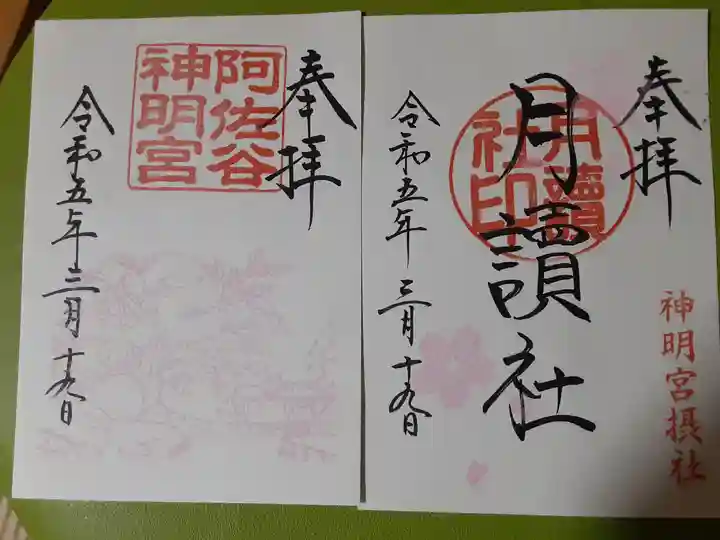 奉拝
阿佐谷
神明宮
令和五年三月十九日
奉拝
神明宮摂社
月讀社
月讀
社印
令和五年三月十九日